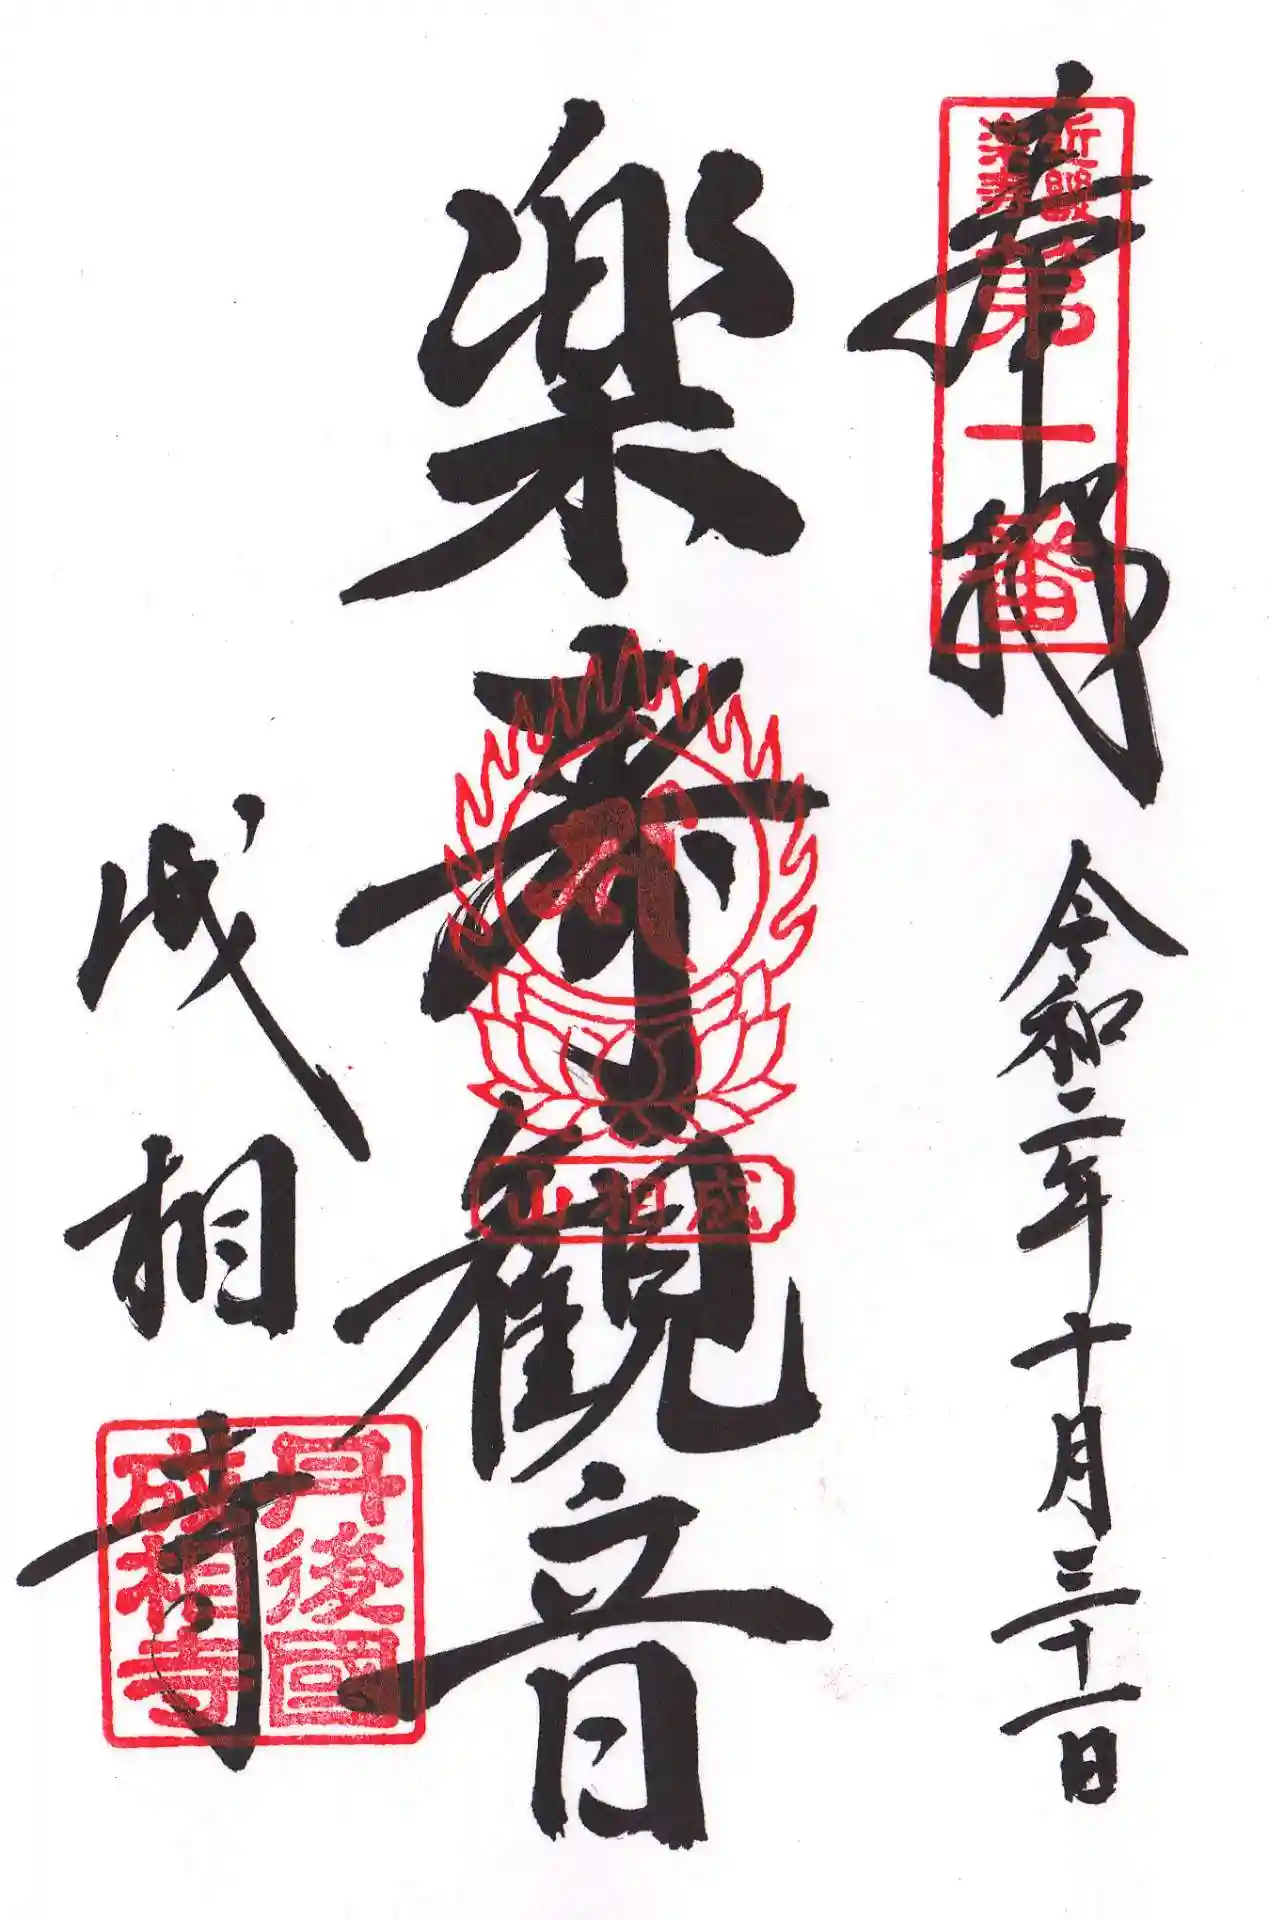 奉拝
近畿
楽寿
第一番
令和二年十月三十一日
楽寿観音
成相山
成相寺
丹後國
成相寺